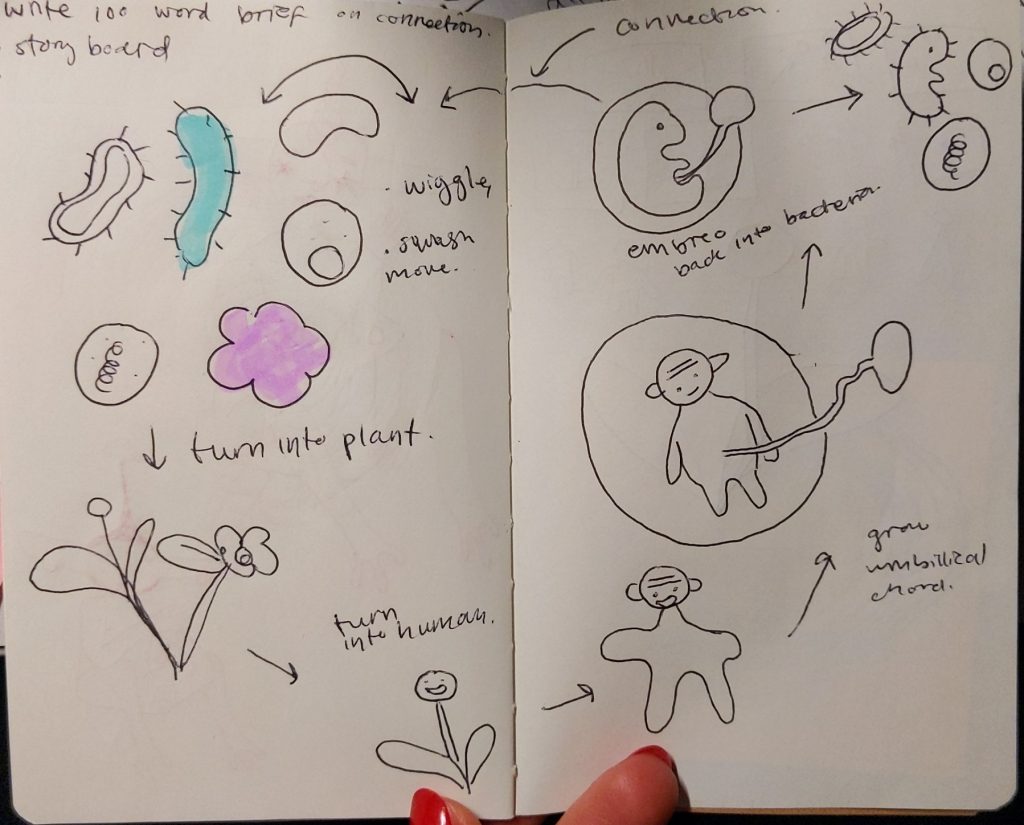 write 100 word brief on connection.
story board
. wiggle,
. squash
move.
turn into plant.
turn
into human.
connection.
embreo
back into bacteria.
grow
umbillical
chord.